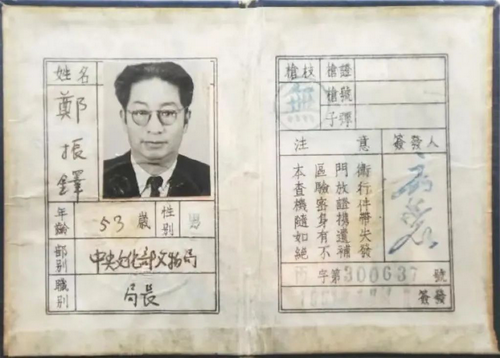 姓名
鄭振鐸
年齡 53 歲 性別 男
部別 中央文化部文物局
職別 局長
槍枝 槍證
無 槍號
子彈
注意 簽發人
本區門衛
查驗放行
機密證件
隨身攜帶
如有遺失
絕不補發
字第300637號
簽發